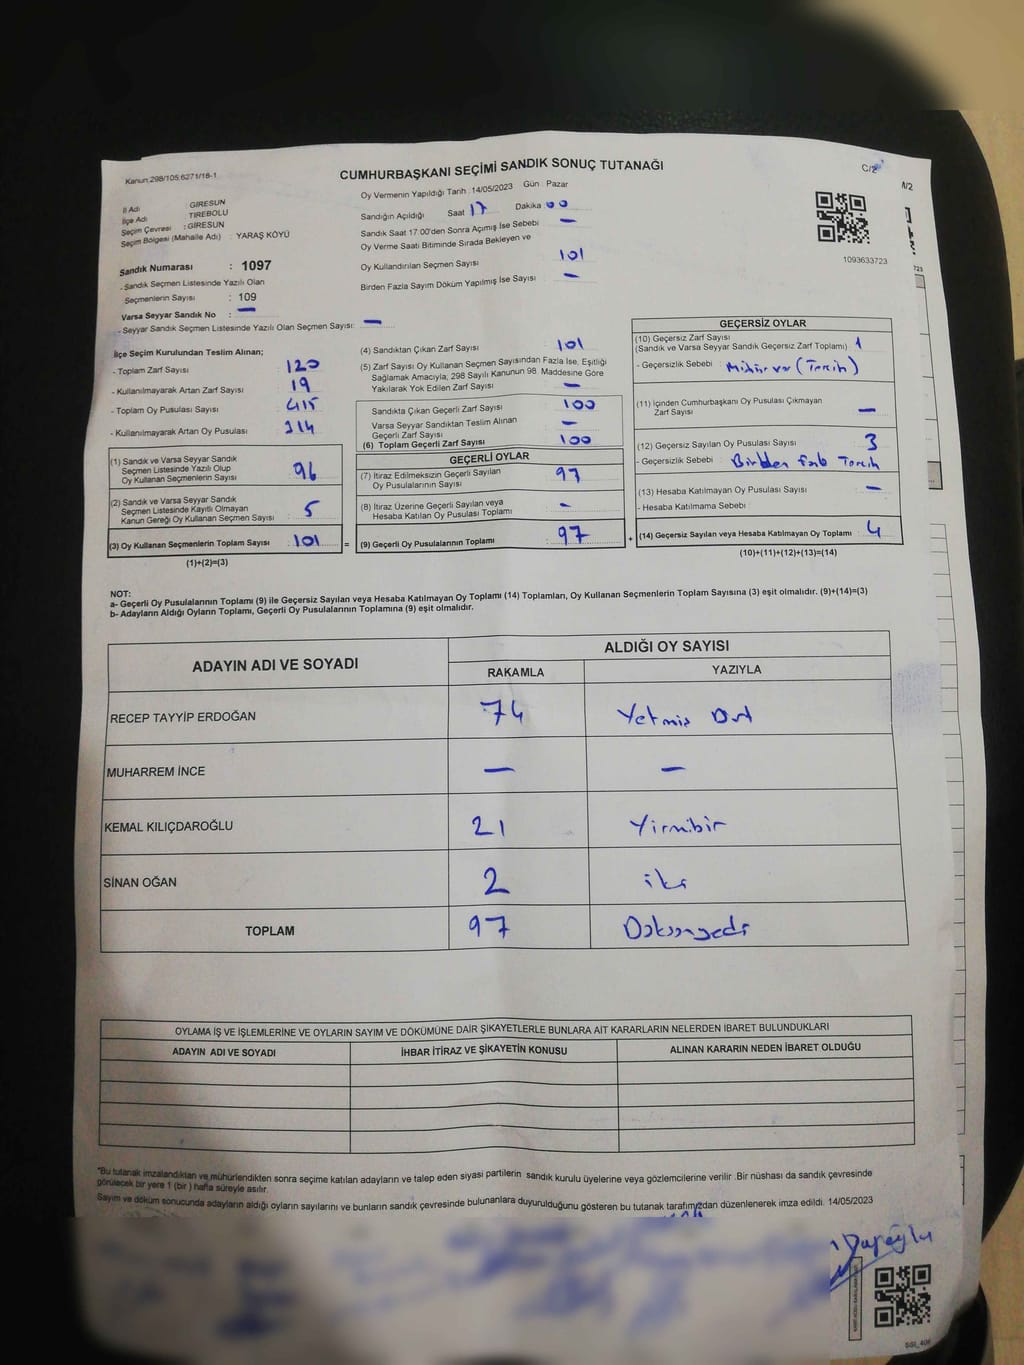 Kanun:298/105;6271/18-1
CUMHURBAŞKANI SEÇİMİ SANDIK SONUÇ TUTANAĞI
C/2
A/2
İl Adı : GİRESUN
İlçe Adı : TİREBOLU
Seçim Çevresi : GİRESUN
Seçim Bölgesi (Mahalle Adı) : YARAŞ KÖYÜ
Sandık Numarası : 1097
- Sandık Seçmen Listesinde Yazılı Olan
Seçmenlerin Sayısı : 109
Varsa Seyyar Sandık No : —
- Seyyar Sandık Seçmen Listesinde Yazılı Olan Seçmen Sayısı: —
Oy Vermenin Yapıldığı Tarih :14/05/2023 Gün : Pazar
Sandığın Açıldığı Saat 17 Dakika 00
Sandık Saat 17:00'den Sonra Açımış İse Sebebi —
Oy Verme Saati Bitiminde Sırada Bekleyen ve
Oy Kullandırılan Seçmen Sayısı 101
Birden Fazla Sayım Döküm Yapılmış İse Sayısı —
1093633723
723
İlçe Seçim Kurulundan Teslim Alınan;
- Toplam Zarf Sayısı : 120
- Kullanılmayarak Artan Zarf Sayısı : 19
- Toplam Oy Pusulası Sayısı : 415
- Kullanılmayarak Artan Oy Pusulası : 314
(1) Sandık ve Varsa Seyyar Sandık
Seçmen Listesinde Yazılı Olup
Oy Kullanan Seçmenlerin Sayısı : 96
(2) Sandık ve Varsa Seyyar Sandık
Seçmen Listesinde Kayıtlı Olmayan
Kanun Gereği Oy Kullanan Seçmen Sayısı : 5
(3) Oy Kullanan Seçmenlerin Toplam Sayısı : 101 =
(1)+(2)=(3)
(4) Sandıktan Çıkan Zarf Sayısı : 101
(5) Zarf Sayısı Oy Kullanan Seçmen Sayısından Fazla İse, Eşitliği
Sağlamak Amacıyla, 298 Sayılı Kanunun 98. Maddesine Göre
Yakılarak Yok Edilen Zarf Sayısı : —
Sandıkta Çıkan Geçerli Zarf Sayısı : 100
Varsa Seyyar Sandıktan Teslim Alınan
Geçerli Zarf Sayısı : —
(6) Toplam Geçerli Zarf Sayısı : 100
GEÇERLİ OYLAR
(7) İtiraz Edilmeksizin Geçerli Sayılan
Oy Pusulalarının Sayısı : 97
(8) İtiraz Üzerine Geçerli Sayılan veya
Hesaba Katılan Oy Pusulası Toplamı : -
(9) Geçerli Oy Pusulalarının Toplamı : 97 +
GEÇERSİZ OYLAR
(10) Geçersiz Zarf Sayısı
(Sandık ve Varsa Seyyar Sandık Geçersiz Zarf Toplamı) : 1
- Geçersizlik Sebebi : Mühür var (Tercih)
(11) İçinden Cumhurbaşkanı Oy Pusulası Çıkmayan
Zarf Sayısı : —
(12) Geçersiz Sayılan Oy Pusulası Sayısı : 3
- Geçersizlik Sebebi : Birden fazla Tercih
(13) Hesaba Katılmayan Oy Pusulası Sayısı : —
- Hesaba Katılmama Sebebi :
(14) Geçersiz Sayılan veya Hesaba Katılmayan Oy Toplamı : 4
(10)+(11)+(12)+(13)=(14)
NOT:
a- Geçerli Oy Pusulalarının Toplamı (9) ile Geçersiz Sayılan veya Hesaba Katılmayan Oy Toplamı (14) Toplamları, Oy Kullanan Seçmenlerin Toplam Sayısına (3) eşit olmalıdır. (9)+(14)=(3)
b- Adayların Aldığı Oyların Toplamı, Geçerli Oy Pusulalarının Toplamına (9) eşit olmalıdır.
ADAYIN ADI VE SOYADI
ALDIĞI OY SAYISI
RAKAMLA YAZIYLA
RECEP TAYYİP ERDOĞAN 74 Yetmiş Dört
MUHARREM İNCE — —
KEMAL KILIÇDAROĞLU 21 Yirmibir
SİNAN OĞAN 2 iki
TOPLAM 97 Doksanyedi
OYLAMA İŞ VE İŞLEMLERİNE VE OYLARIN SAYIM VE DÖKÜMÜNE DAİR ŞİKAYETLERLE BUNLARA AİT KARARLARIN NELERDEN İBARET BULUNDUKLARI
ADAYIN ADI VE SOYADI İHBAR İTİRAZ VE ŞİKAYETİN KONUSU ALINAN KARARIN NEDEN İBARET OLDUĞU
*Bu tutanak imzalandıktan ve mühürlendikten sonra seçime katılan adayların ve talep eden siyasi partilerin sandık kurulu üyelerine veya gözlemcilerine verilir .Bir nüshası da sandık çevresinde
görülecek bir yere 1 (bir ) hafta süreyle asılır.
Sayım ve döküm sonucunda adayların aldığı oyların sayılarını ve bunların sandık çevresinde bulunanlara duyurulduğunu gösteren bu tutanak tarafımızdan düzenlenerek imza edildi. 14/05/2023